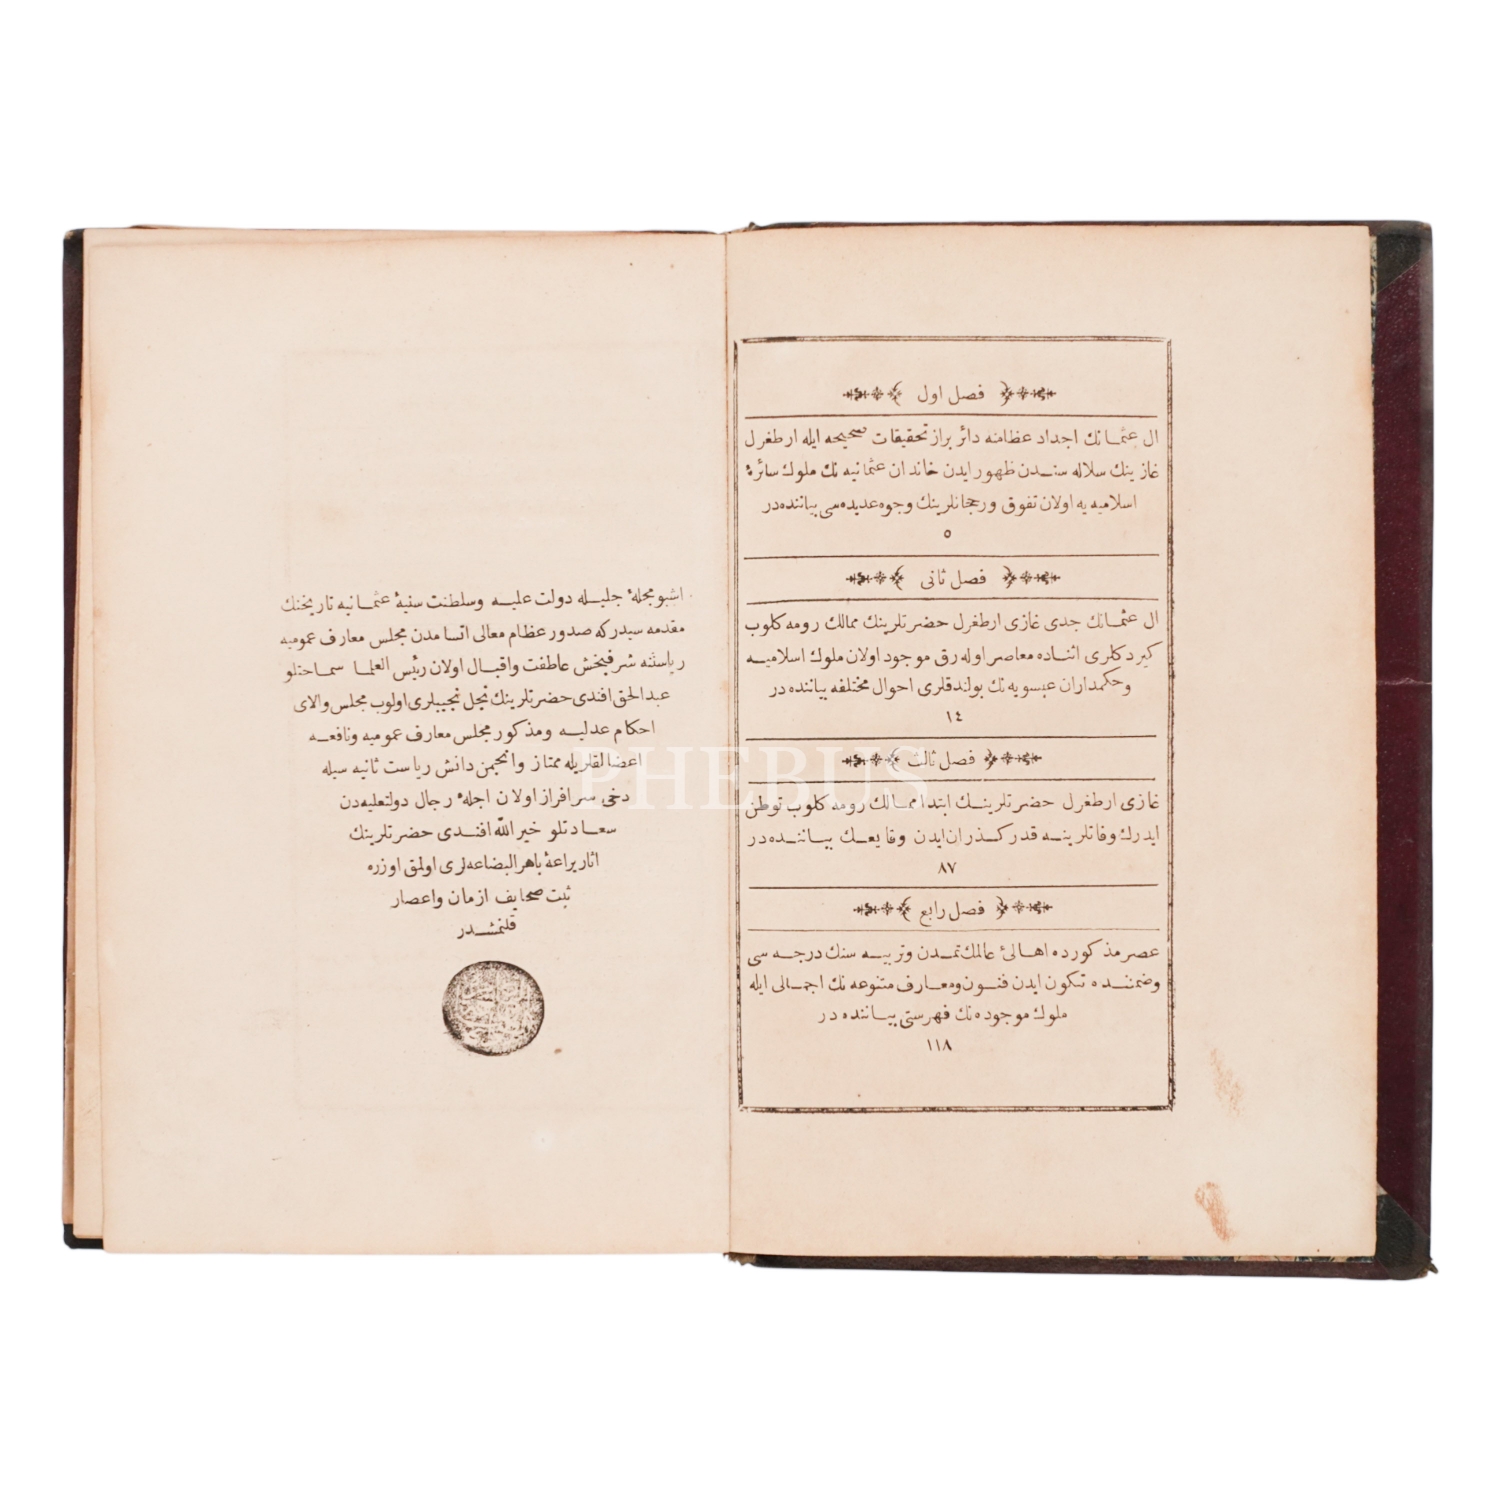 فصل اول
ال عثمانك اجداد عظامنه دائر براز تحقیقات صحیحه ایله ارطغرل
غازینك سلاله سندن ظهور ایدن خاندان عثمانیه نك ملوك سائرهٔ
اسلامیه یه اولان تفوق و رجحانلرینك وجوه عدیده سی بیاننده در
٥
فصل ثانی
ال عثمانك جدی غازی ارطغرل حضرتلرینك ممالك رومه كلوب
كیردكلری اثناده معاصر اوله رق موجود اولان ملوك اسلامیه
و حكمداران عیسویه نك بولندقلری احوال مختلفه بیاننده در
١٤
فصل ثالث
غازی ارطغرل حضرتلرینك ابتدا ممالك رومه كلوب توطن
ایدرك وفاتلرینه قدر كذران ایدن وقایعك بیاننده در
٨٧
فصل رابع
عصر مذكورده اهالئ عالمك تمدن و تربیه سنك درجه سی
و ضمننده تكون ایدن فنون ومعارف متنوعه نك اجمالی ایله
ملوك موجوده نك فهرستی بیاننده در
١١٨
اشبو مجلهٔ جلیله دولت علیه وسلطنت سنیهٔ عثمانیه تاریخنك
مقدمه سیدركه صدور عظام معالی اتسامدن مجلس معارف عمومیه
ریاستنه شرفبخش عاطفت واقبال اولان رئیس العلما سماحتلو
عبدالحق افندی حضرتلرینك نجل نجیبلری اولوب مجلس والای
احكام عدلیه ومذكور مجلس معارف عمومیه ونافعه
اعضالقلریله ممتاز وانجمن دانش ریاست ثانیه سیله
دخی سرافراز اولان اجلهٔ رجال دولتعلیه دن
سعادتلو خیرالله افندی حضرتلرینك
اثار براعهٔ باهر البضاعه لری اولمق اوزره
ثبت صحایف ازمان واعصار
قلنمشدر
PHEBUS